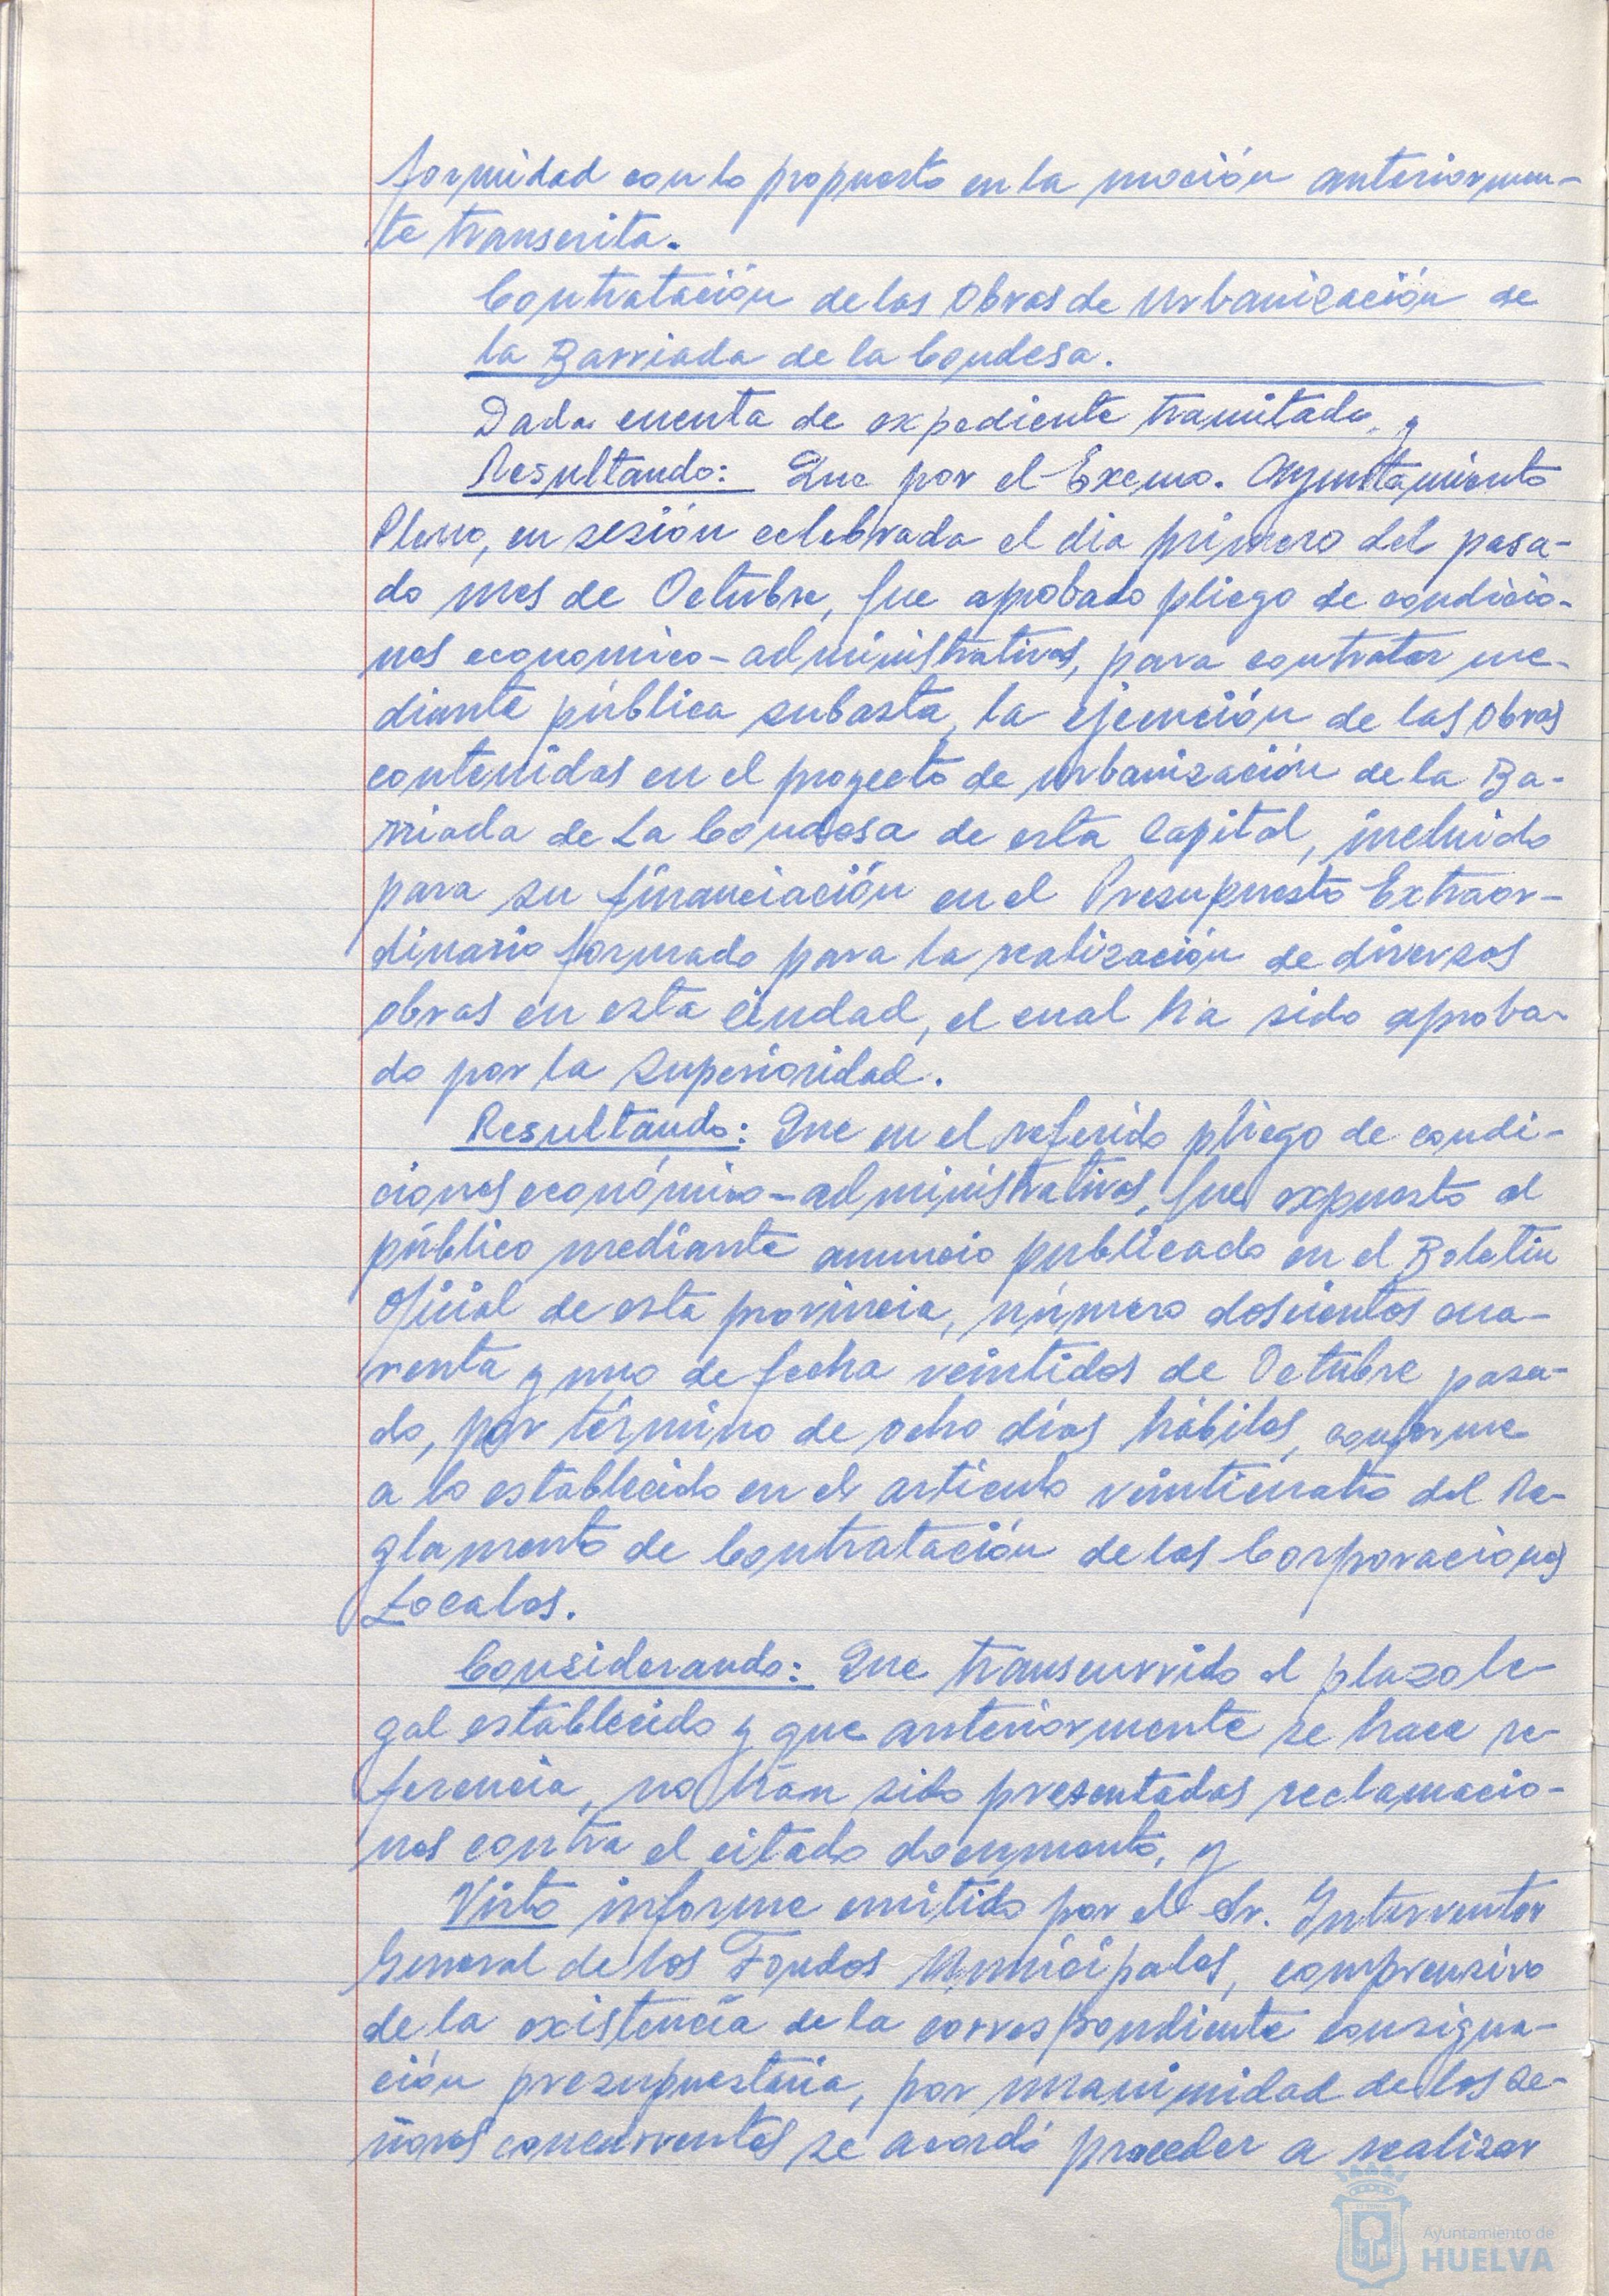 formidad con lo propuesto en la moción anteriormen-
te transcrita.
Contratación de las Obras de Urbanización de
la Barriada de la Condesa.
Dada cuenta de expediente tramitado, y
Resultando: Que por el Excmo. Ayuntamiento
Pleno, en sesión celebrada el dia primero del pasa-
do mes de Octubre, fue aprobado pliego de condicio-
nes economico-administrativas, para contratar me-
diante pública subasta, la ejecución de las Obras
contenidas en el proyecto de urbanización de la Ba-
rriada de La Condesa de esta Capital, incluido
para su financiación en el Presupuesto Extraor-
dinario formado para la realización de diversos
obras en esta ciudad, el cual ha sido aproba-
do por la Superioridad.
Resultando: Que en el referido pliego de condi-
ciones económico-administrativas, fue expuesto al
público mediante anuncio publicado en el Boletin
Oficial de esta provincia, número doscientos cua-
renta y uno de fecha veintidos de Octubre pasa-
do, por término de ocho días hábiles, conforme
a lo establecido en el articulo veinticuatro del Re-
glamento de Contratación de las Corporaciones
Locales.
Considerando: Que transcurrido el plazo le-
gal establecido y que anteriormente se hace re-
ferencia, no han sido presentadas reclamacio-
nes contra el citado documento, y
Visto informe emitido por el Sr. Interventor
General de los Fondos Municipales, comprensivo
de la existencia de la correspondiente consigna-
ción presupuestaria, por unanimidad de los se-
ñores concurrentes se acordó proceder a realizar
Ayuntamiento de
HUELVA